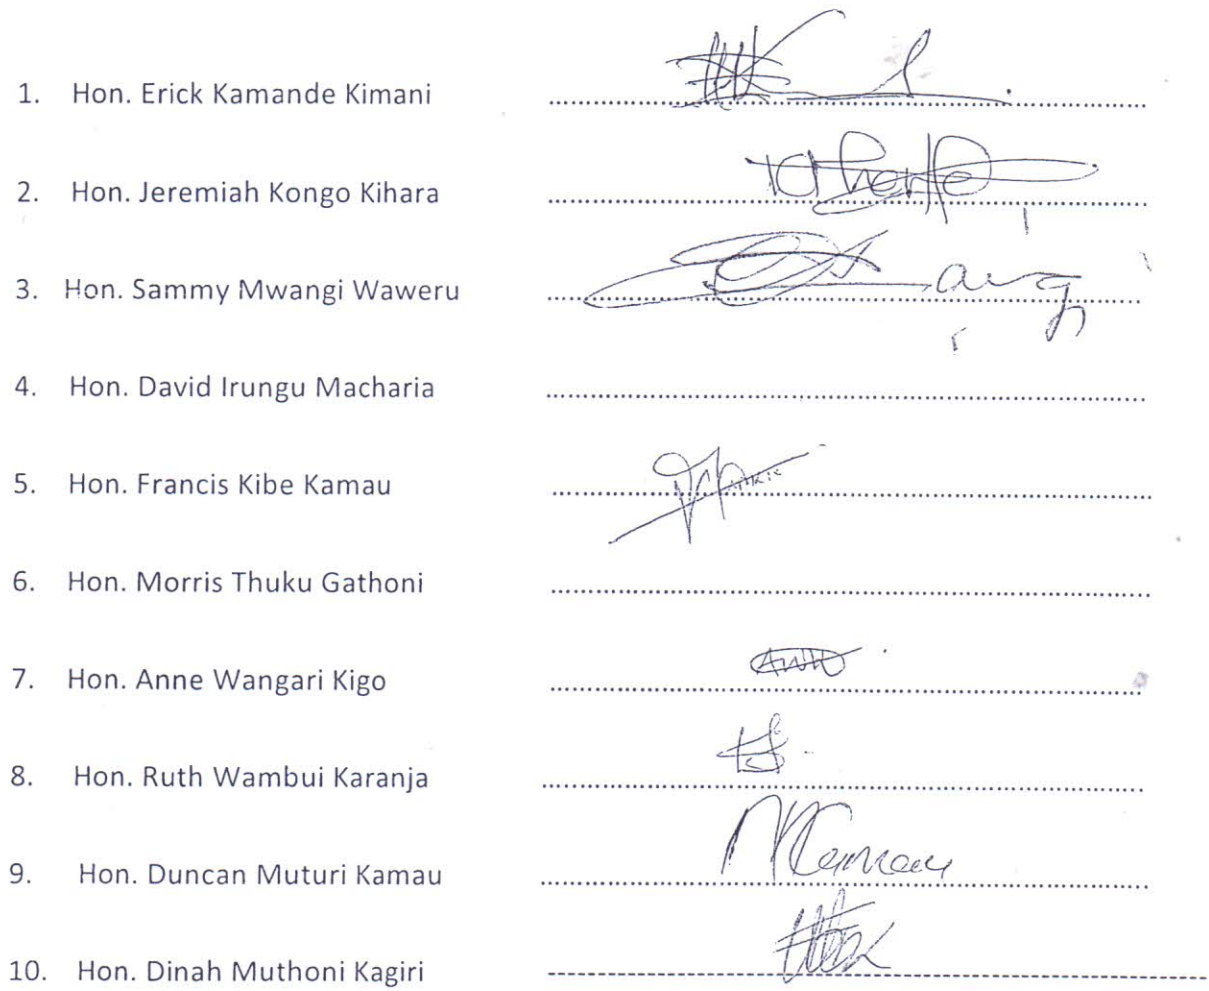 1. Hon. Erick Kamande Kimani
2. Hon. Jeremiah Kongo Kihara
3. Hon. Sammy Mwangi Waweru
4. Hon. David Irungu Macharia
5. Hon. Francis Kibe Kamau
6. Hon. Morris Thuku Gathoni
7. Hon. Anne Wangari Kigo
8. Hon. Ruth Wambui Karanja
9. Hon. Duncan Muturi Kamau
10. Hon. Dinah Muthoni Kagiri